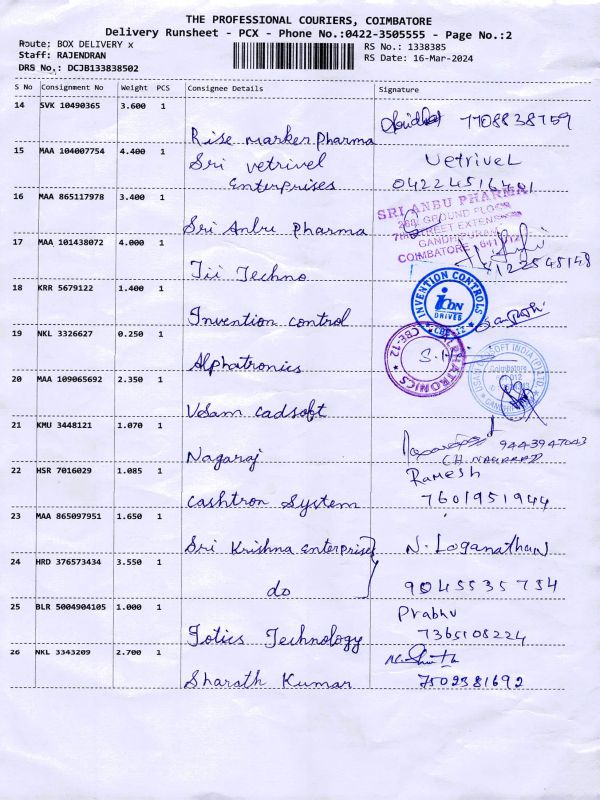 THE PROFESSIONAL COURIERS, COIMBATORE
Delivery Runsheet - PCX - Phone No.:0422-3505555 - Page No.:2
Route: BOX DELIVERY x
RS No.: 1338385
Staff: RAJENDRAN
RS Date: 16-Mar-2024
DRS No.: DCJB133838502
S No Consignment No Weight PCS Consignee Details Signature
14 SVK 10490365 3.600 1
Rise marker pharma 7708838759
15 MAA 104007754 4.400 1
Sri vetrivel Vetrivel
Enterprises
16 MAA 865117978 3.400 1
SRI ANBU PHARMA
GROUND FLOOR
Sri Anbu pharma
GANDHIPURAM
17 MAA 101438072 4.000 1
COIMBATORE
Jii Techno
18 KRR 5679122 1.400 1
INVENTION CONTROLS
iCON
DRIVES
CBE-12
Invention control
19 NKL 3326627 0.250 1
ALPHATRONICS
CBE-12
Alphatronics
20 MAA 109065692 2.350 1
Coimbatore
Vdam cadsoft
21 KMU 3448121 1.070 1
9443947043
Nagaraj
22 HSR 7016029 1.085 1 Ramesh
cashtron System 7601951944
23 MAA 865097951 1.650 1
Sri Krishna enterprises N. Loganathan
24 HRD 376573434 3.550 1
do 9045535734
25 BLR 5004904105 1.000 1 Prabhu
Totics Technology 7365108224
26 NKL 3343209 2.700 1
Sharath Kumar 7502381692